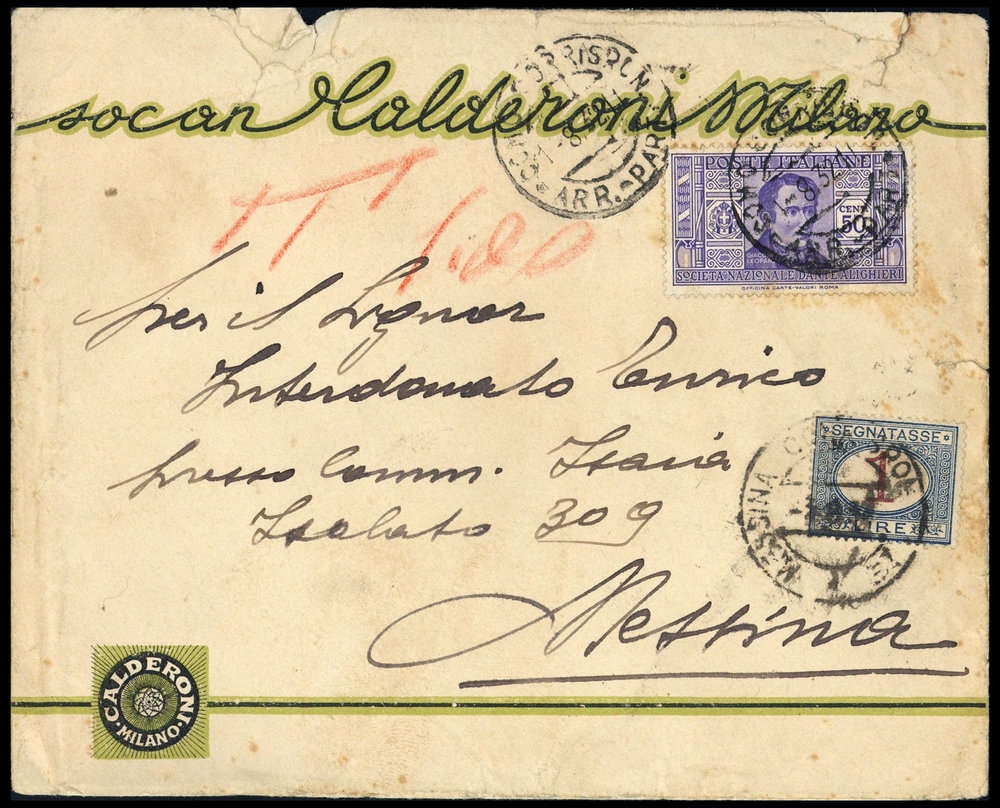 socan Calderoni Milano
CORRISPON
ARR. PAR
POSTE ITALIANE
CENT. 50
GIACOMO LEOPARDI
SOCIETÀ NAZIONALE DANTE ALIGHIERI
OFFICINA CARTE-VALORI ROMA
T 1.00
per il Signor
Interdonato Enrico
presso Comm. Isaia
Isolato 309
Messina
SEGNATASSE
1
LIRE
MESSINA
CALDERONI
MILANO